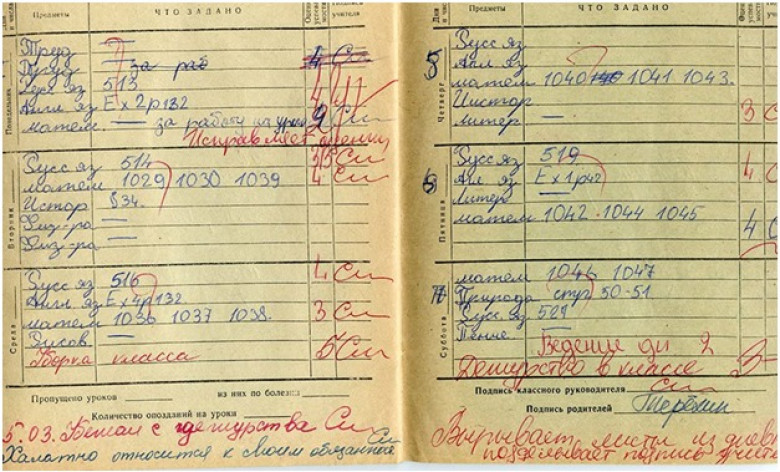 Предметы ЧТО ЗАДАНО
Труд —
Труд — за раб 4
Русс яз 513 4
Англ яз Ex 2p132 4
матем. — за работу на уроке 2
Исправляет оценки
Понедельник
Русс яз 514 3/5
матем 1029 1030 1039 4
Истор §34.
Физ-ра —
Физ-ра —
Вторник
Русс яз 516 4
Англ. яз Ex4p132
матем 1036 1037 1038. 3
Рисов —
Уборка класса 5
Среда
Пропущено уроков из них по болезни
Количество опозданий на уроки
5.03. Бежал с дежурства
Халатно относится к своим обязанност
Предметы ЧТО ЗАДАНО
Русс яз
Англ яз
матем 1040 1041 1043.
Истор
Литер — 3
Четверг
Русс яз 519 4
Анг яз Ex1p42
Литер —
матем 1042 1044 1045 4
Пятница
матем 1046 1047
Природа стр 50-51
Русс яз 521
Пение —
Ведение дн 2
Дежурство в классе 3
Суббота
Подпись классного руководителя
Подпись родителей Терёхин
Вырывает листы из днев
подделывает подпись учит